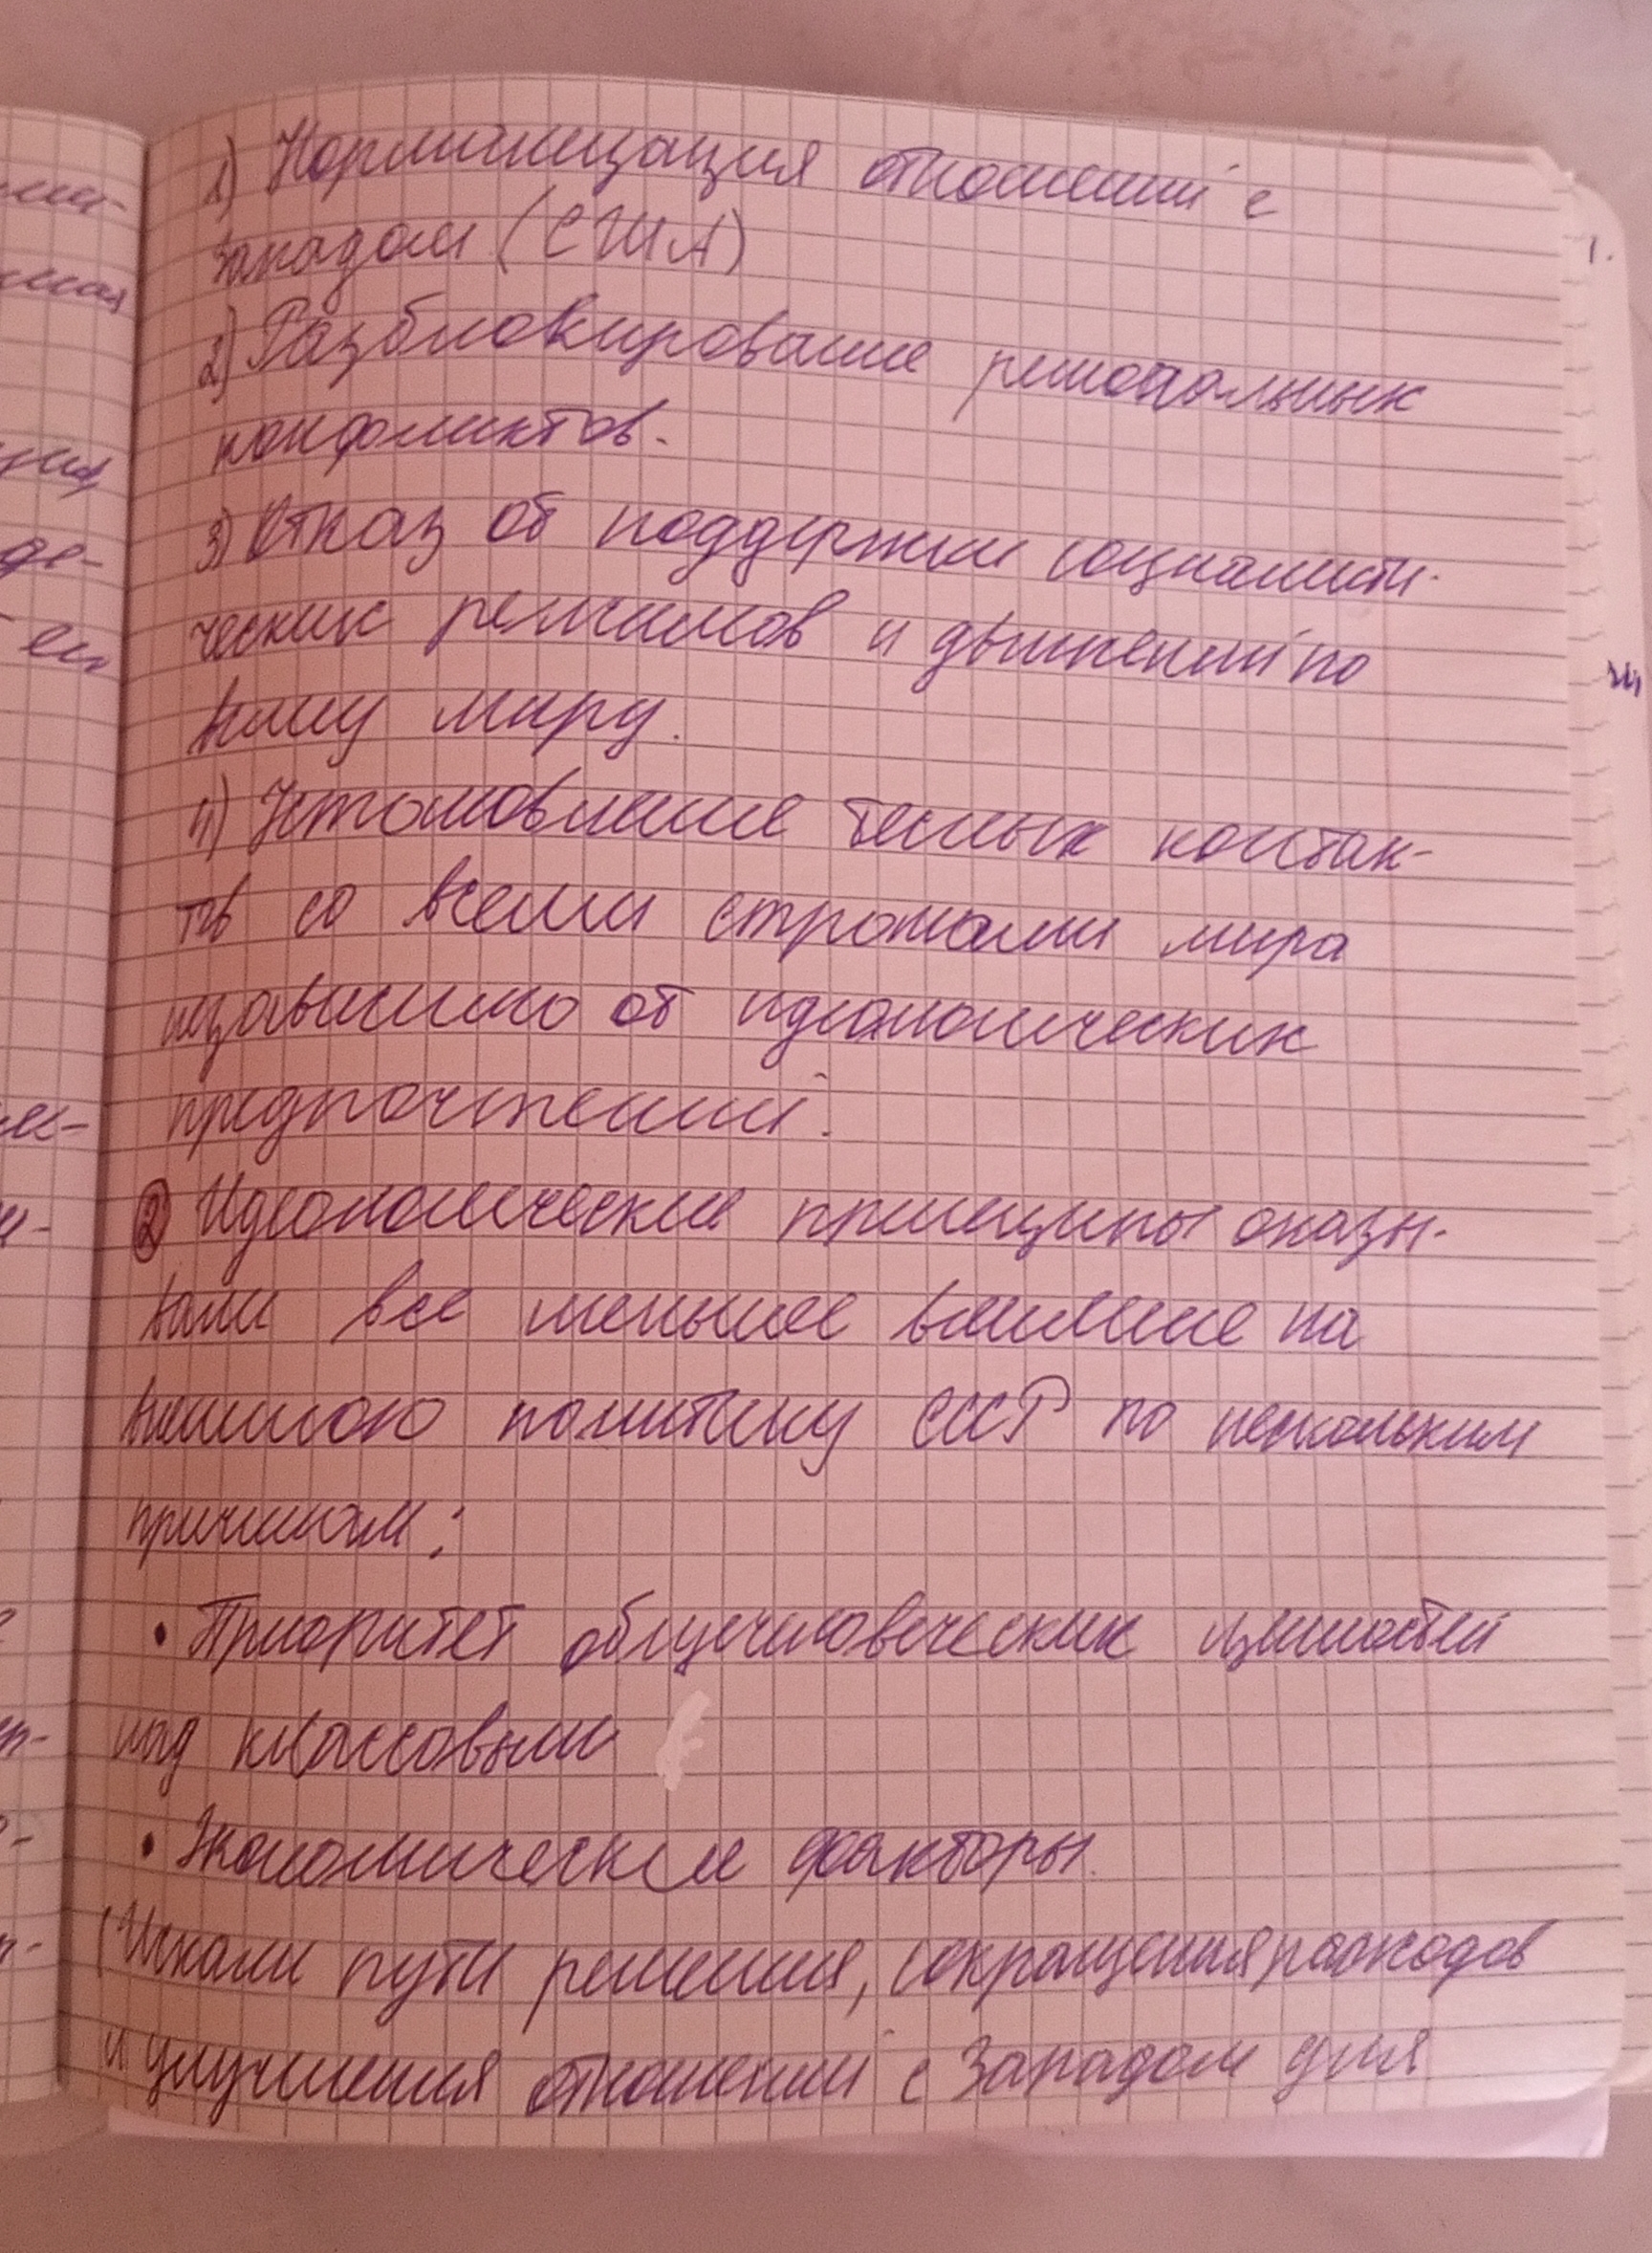 1) Нормализация отношений с
западом (США)
2) Разблокирование региональных
конфликтов.
3) Отказ от поддержки социалисти-
ческих режимов и движений по
всему миру.
4) Установление тесных контак-
тов со всеми странами мира
независимо от идеологических
предпочтений.
② Идеологические принципы оказы-
вали все меньшее влияние на
внешнюю политику СССР по нескольким
причинам:
• Приоритет общечеловеческих ценностей
над классовыми
• Экономические факторы.
(Искали пути решения, сокращения расходов
и улучшения отношений с Западом для